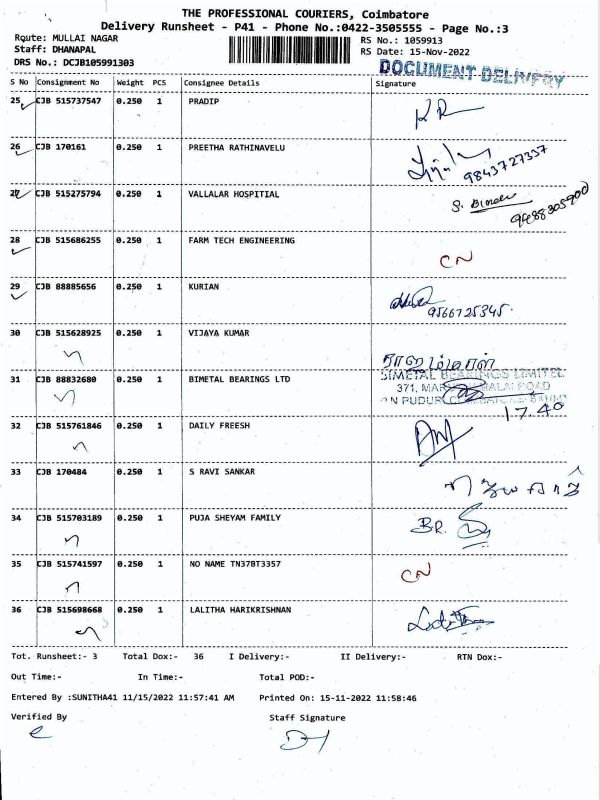 THE PROFESSIONAL COURIERS, Coimbatore
Delivery Runsheet - P41 - Phone No.:0422-3505555 - Page No.:3
Route: MULLAI NAGAR RS No.: 1059913
Staff: DHANAPAL RS Date: 15-Nov-2022
DRS No.: DCJB105991303
DOCUMENT DELIVERY
S No Consignment No Weight PCS Consignee Details Signature
25 CJB 515737547 0.250 1 PRADIP
26 CJB 170161 0.250 1 PREETHA RATHINAVELU 9843727337
27 CJB 515275794 0.250 1 VALLALAR HOSPITIAL
28 CJB 515686255 0.250 1 FARM TECH ENGINEERING CN
29 CJB 88885656 0.250 1 KURIAN 9566725345.
30 CJB 515628925 0.250 1 VIJAYA KUMAR
31 CJB 88832680 0.250 1 BIMETAL BEARINGS LTD
BIMETAL BEARINGS LIMITED
371,
17.40
32 CJB 515761846 0.250 1 DAILY FREESH
33 CJB 170484 0.250 1 S RAVI SANKAR
34 CJB 515703189 0.250 1 PUJA SHEYAM FAMILY
35 CJB 515741597 0.250 1 NO NAME TN37BT3357 CN
36 CJB 515698668 0.250 1 LALITHA HARIKRISHNAN
Tot. Runsheet:- 3 Total Dox:- 36 I Delivery:- II Delivery:- RTN Dox:-
Out Time:- In Time:- Total POD:-
Entered By :SUNITHA41 11/15/2022 11:57:41 AM Printed On: 15-11-2022 11:58:46
Verified By Staff Signature